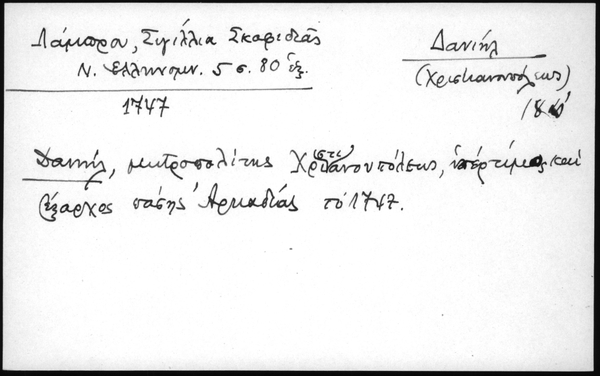 Λάμπρου, Σιγίλλια Σκαφιδιᾶς
Ν. Ἑλληνομν. 5 σ. 80 ἑξ.
1747
Δανιήλ
(Χριστιανουπόλεως)
Δανιήλ, μητροπολίτης Χρι(στι)ανουπόλεως, ὑπέρτιμος καὶ
ἔξαρχος πάσης Ἀρκαδίας τὸ 1747.